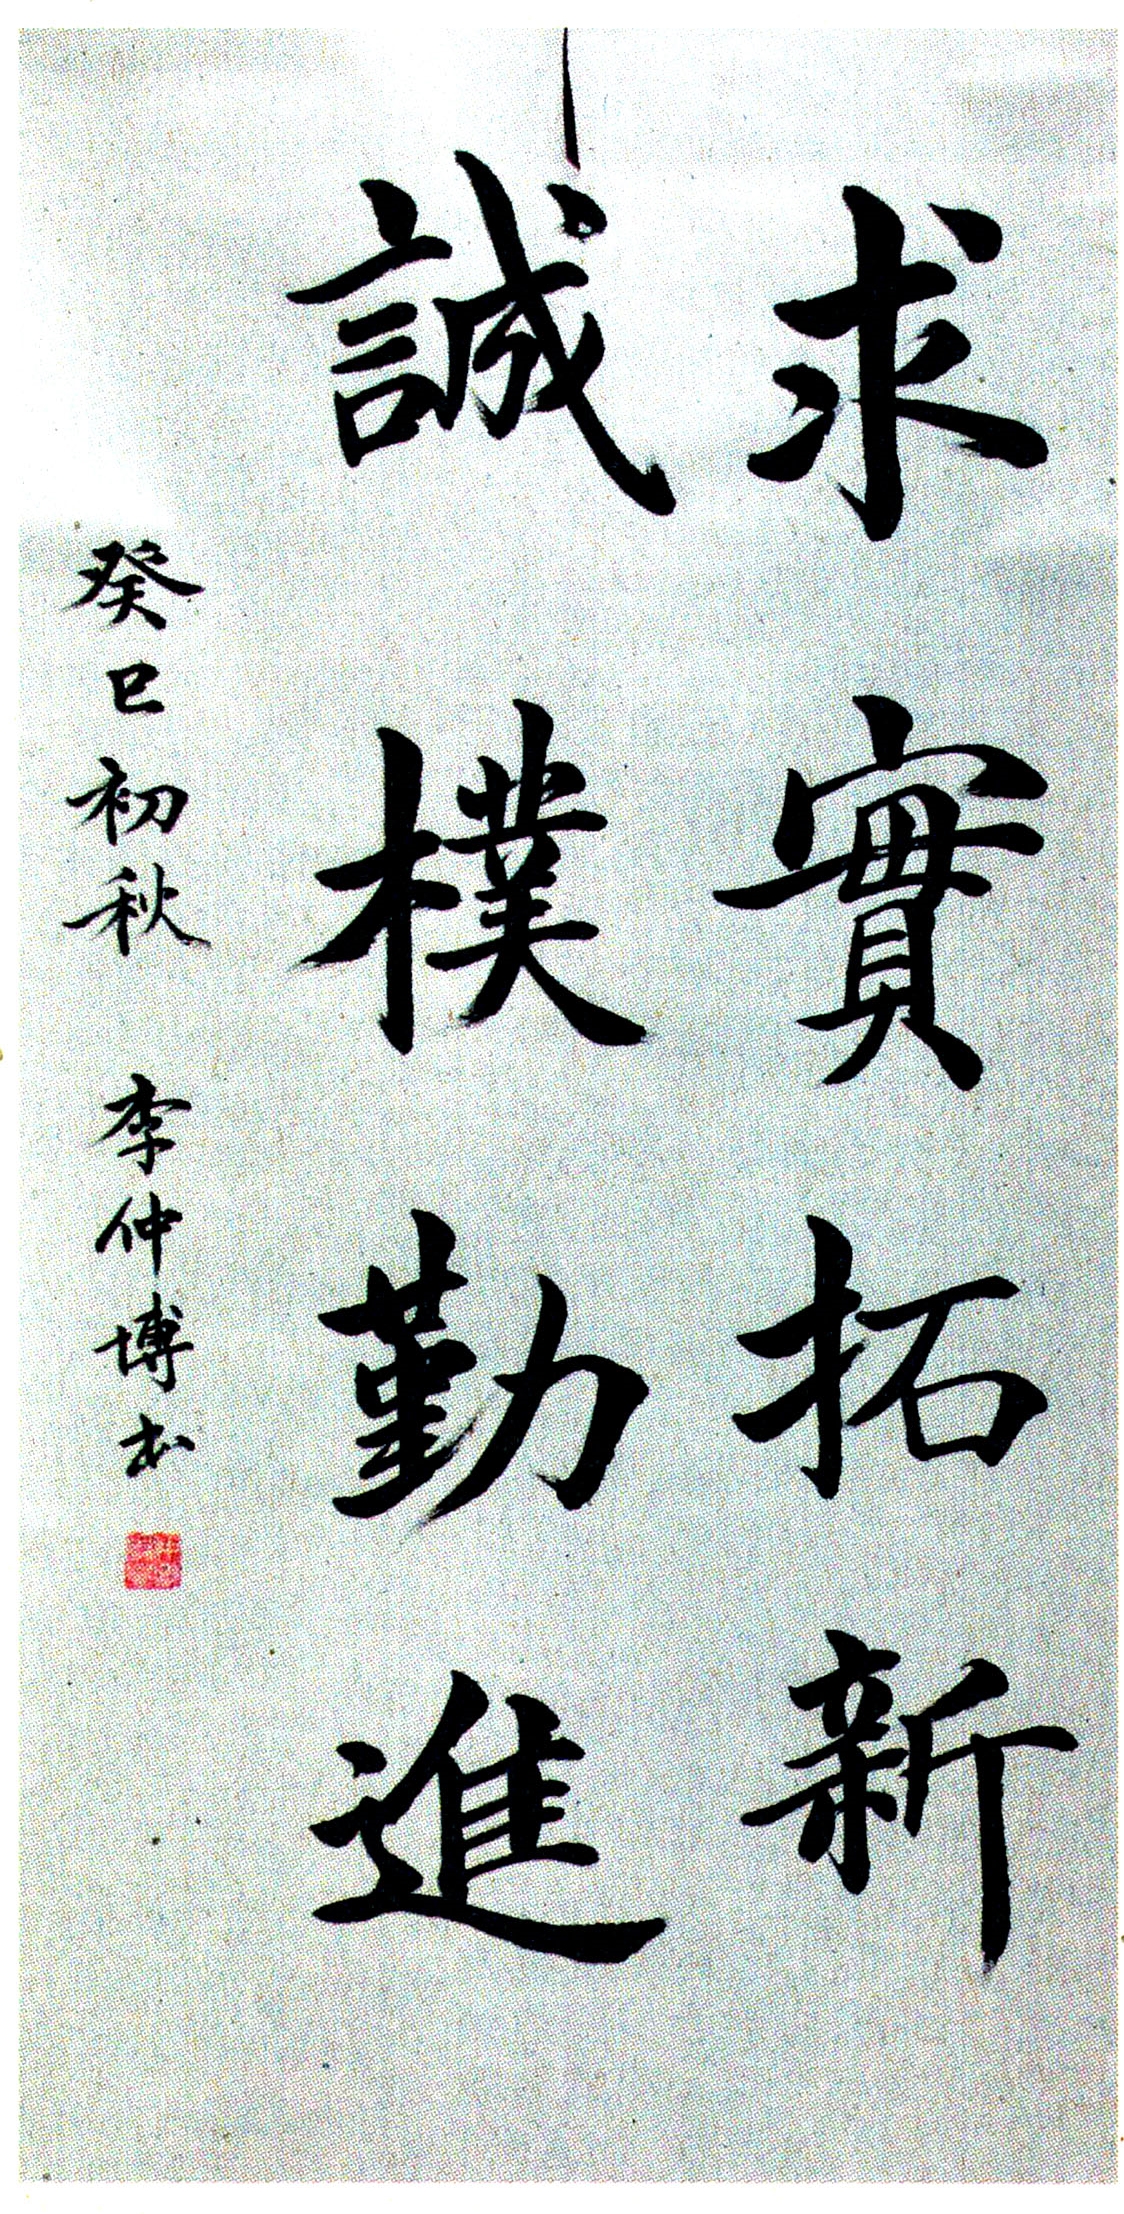 求實拓新
誠樸勤進
癸巳初秋 李仲博书